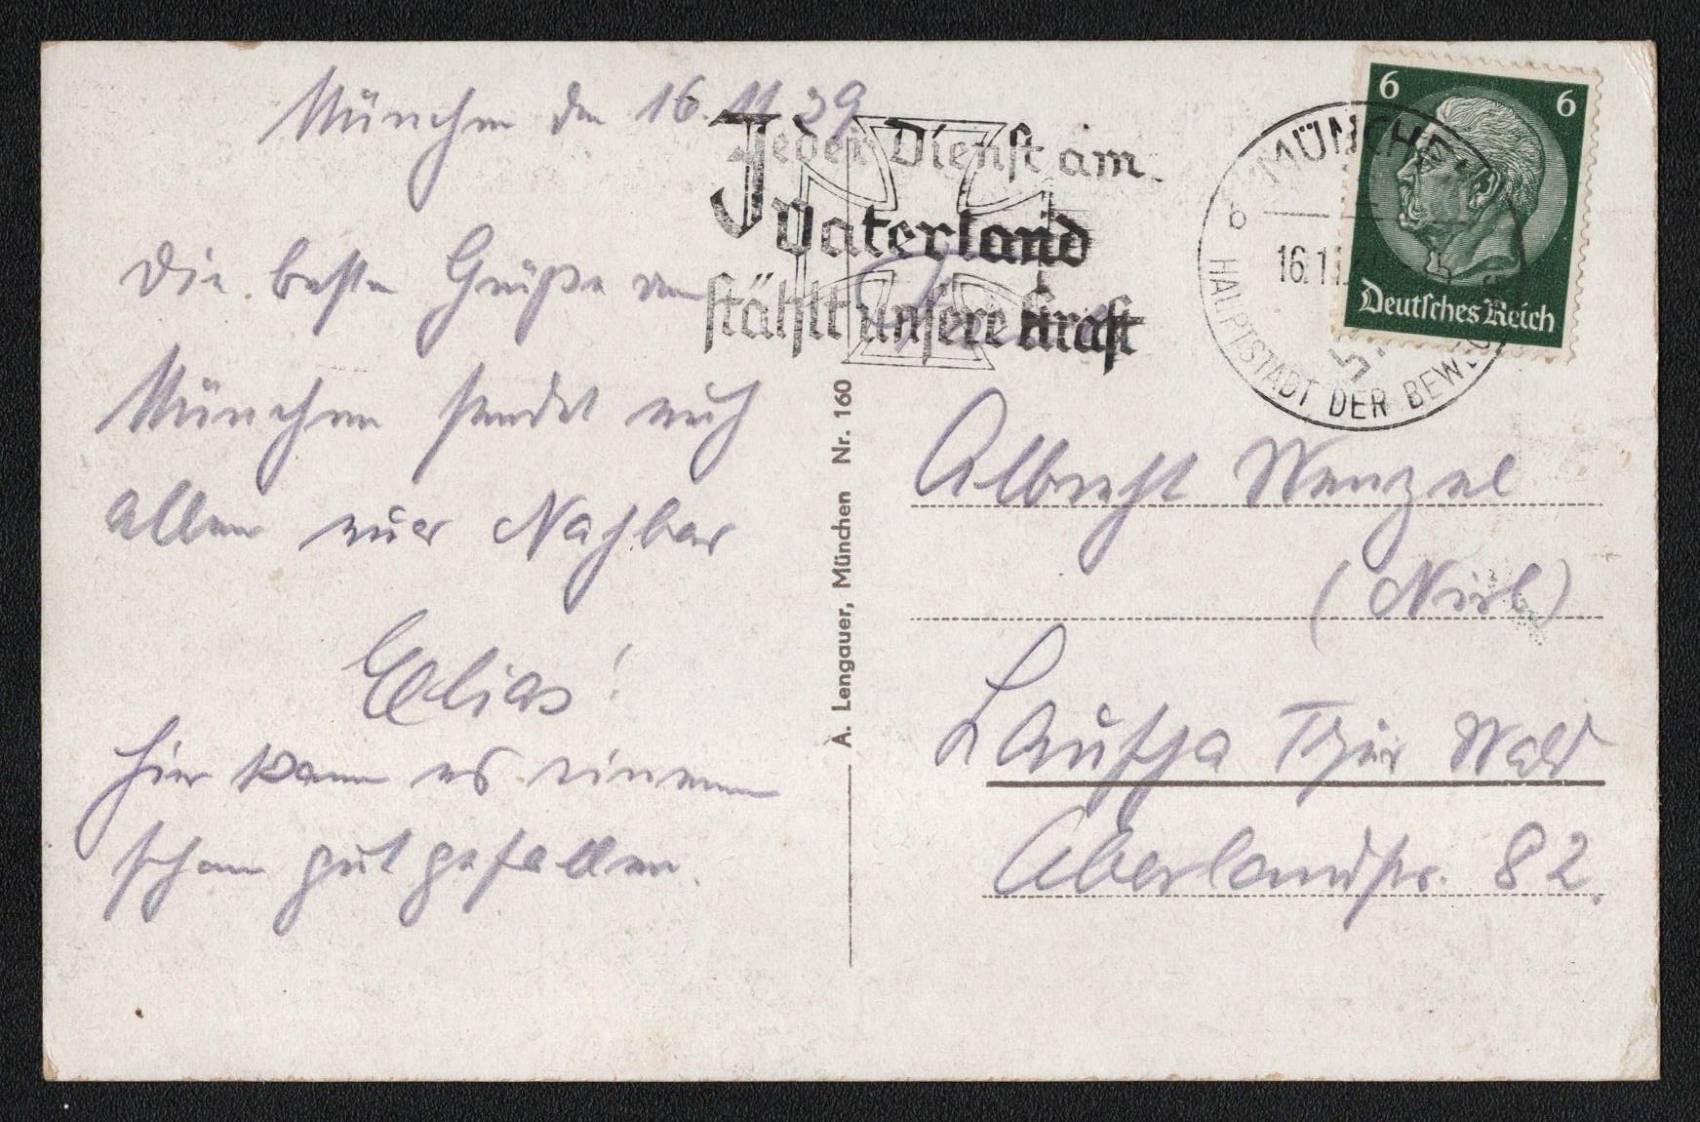 München den 16.11.39
Die besten Grüße aus
München sendet euch
allen euer Nachbar
Elias!
hier kann es einem
schon gut gefallen.
Jeder Dienst am
Vaterland
stählt unsere Kraft
MÜNCHEN
b
16.11.
HAUPTSTADT DER BEWEGUNG
6 6
Deutsches Reich
A. Lengauer, München Nr. 160
Albrecht Wenzel
Lauscha Thür Wald
Oberlandstr. 82.